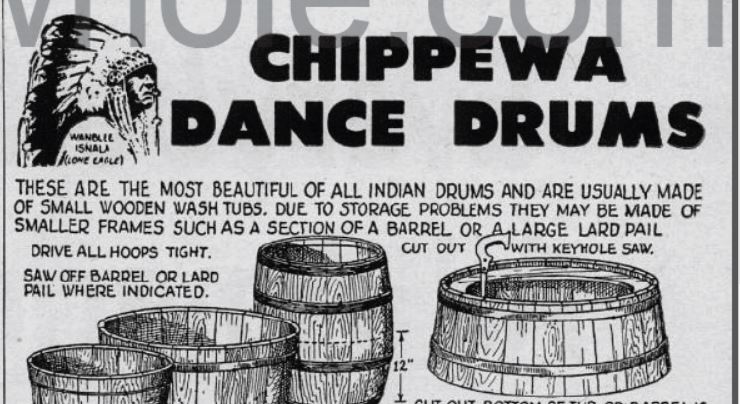 CHIPPEWA
DANCE DRUMS
WANBLEE
ISNALA
(LONE EAGLE)
THESE ARE THE MOST BEAUTIFUL OF ALL INDIAN DRUMS AND ARE USUALLY MADE
OF SMALL WOODEN WASH TUBS. DUE TO STORAGE PROBLEMS THEY MAY BE MADE OF
SMALLER FRAMES SUCH AS A SECTION OF A BARREL OR A LARGE LARD PAIL
DRIVE ALL HOOPS TIGHT.
CUT OUT WITH KEYHOLE SAW.
SAW OFF BARREL OR LARD
PAIL WHERE INDICATED.
12"
CUT OUT BOTTOM OF TUB OR BARREL